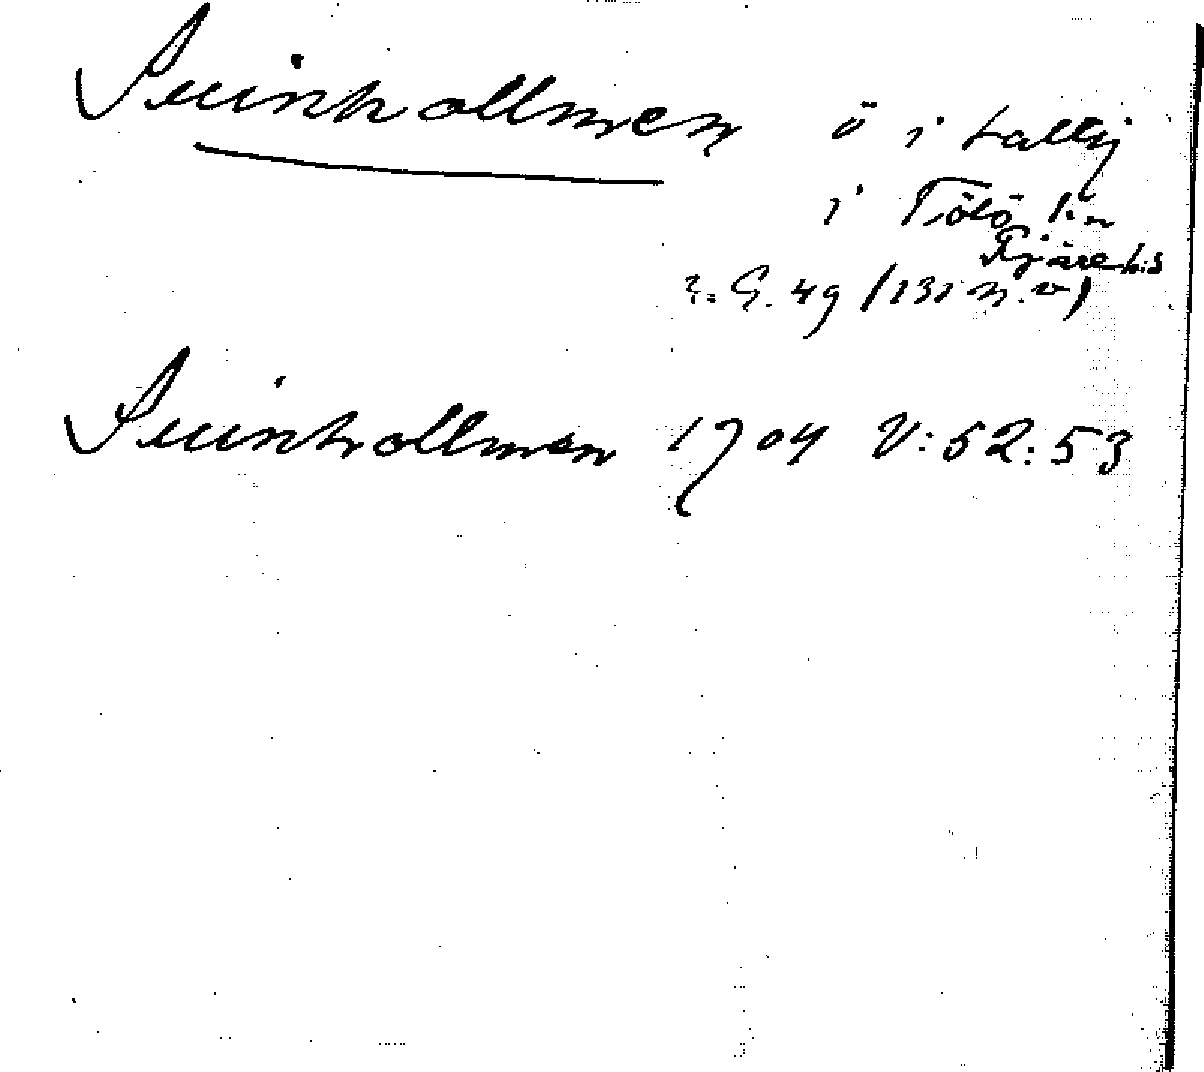 Svinhollmen ö i Lallej
i Tölö sn
Fjäre hd
r. G. 49 (131 n.v)
Svinhollmen 1704 V:52:53